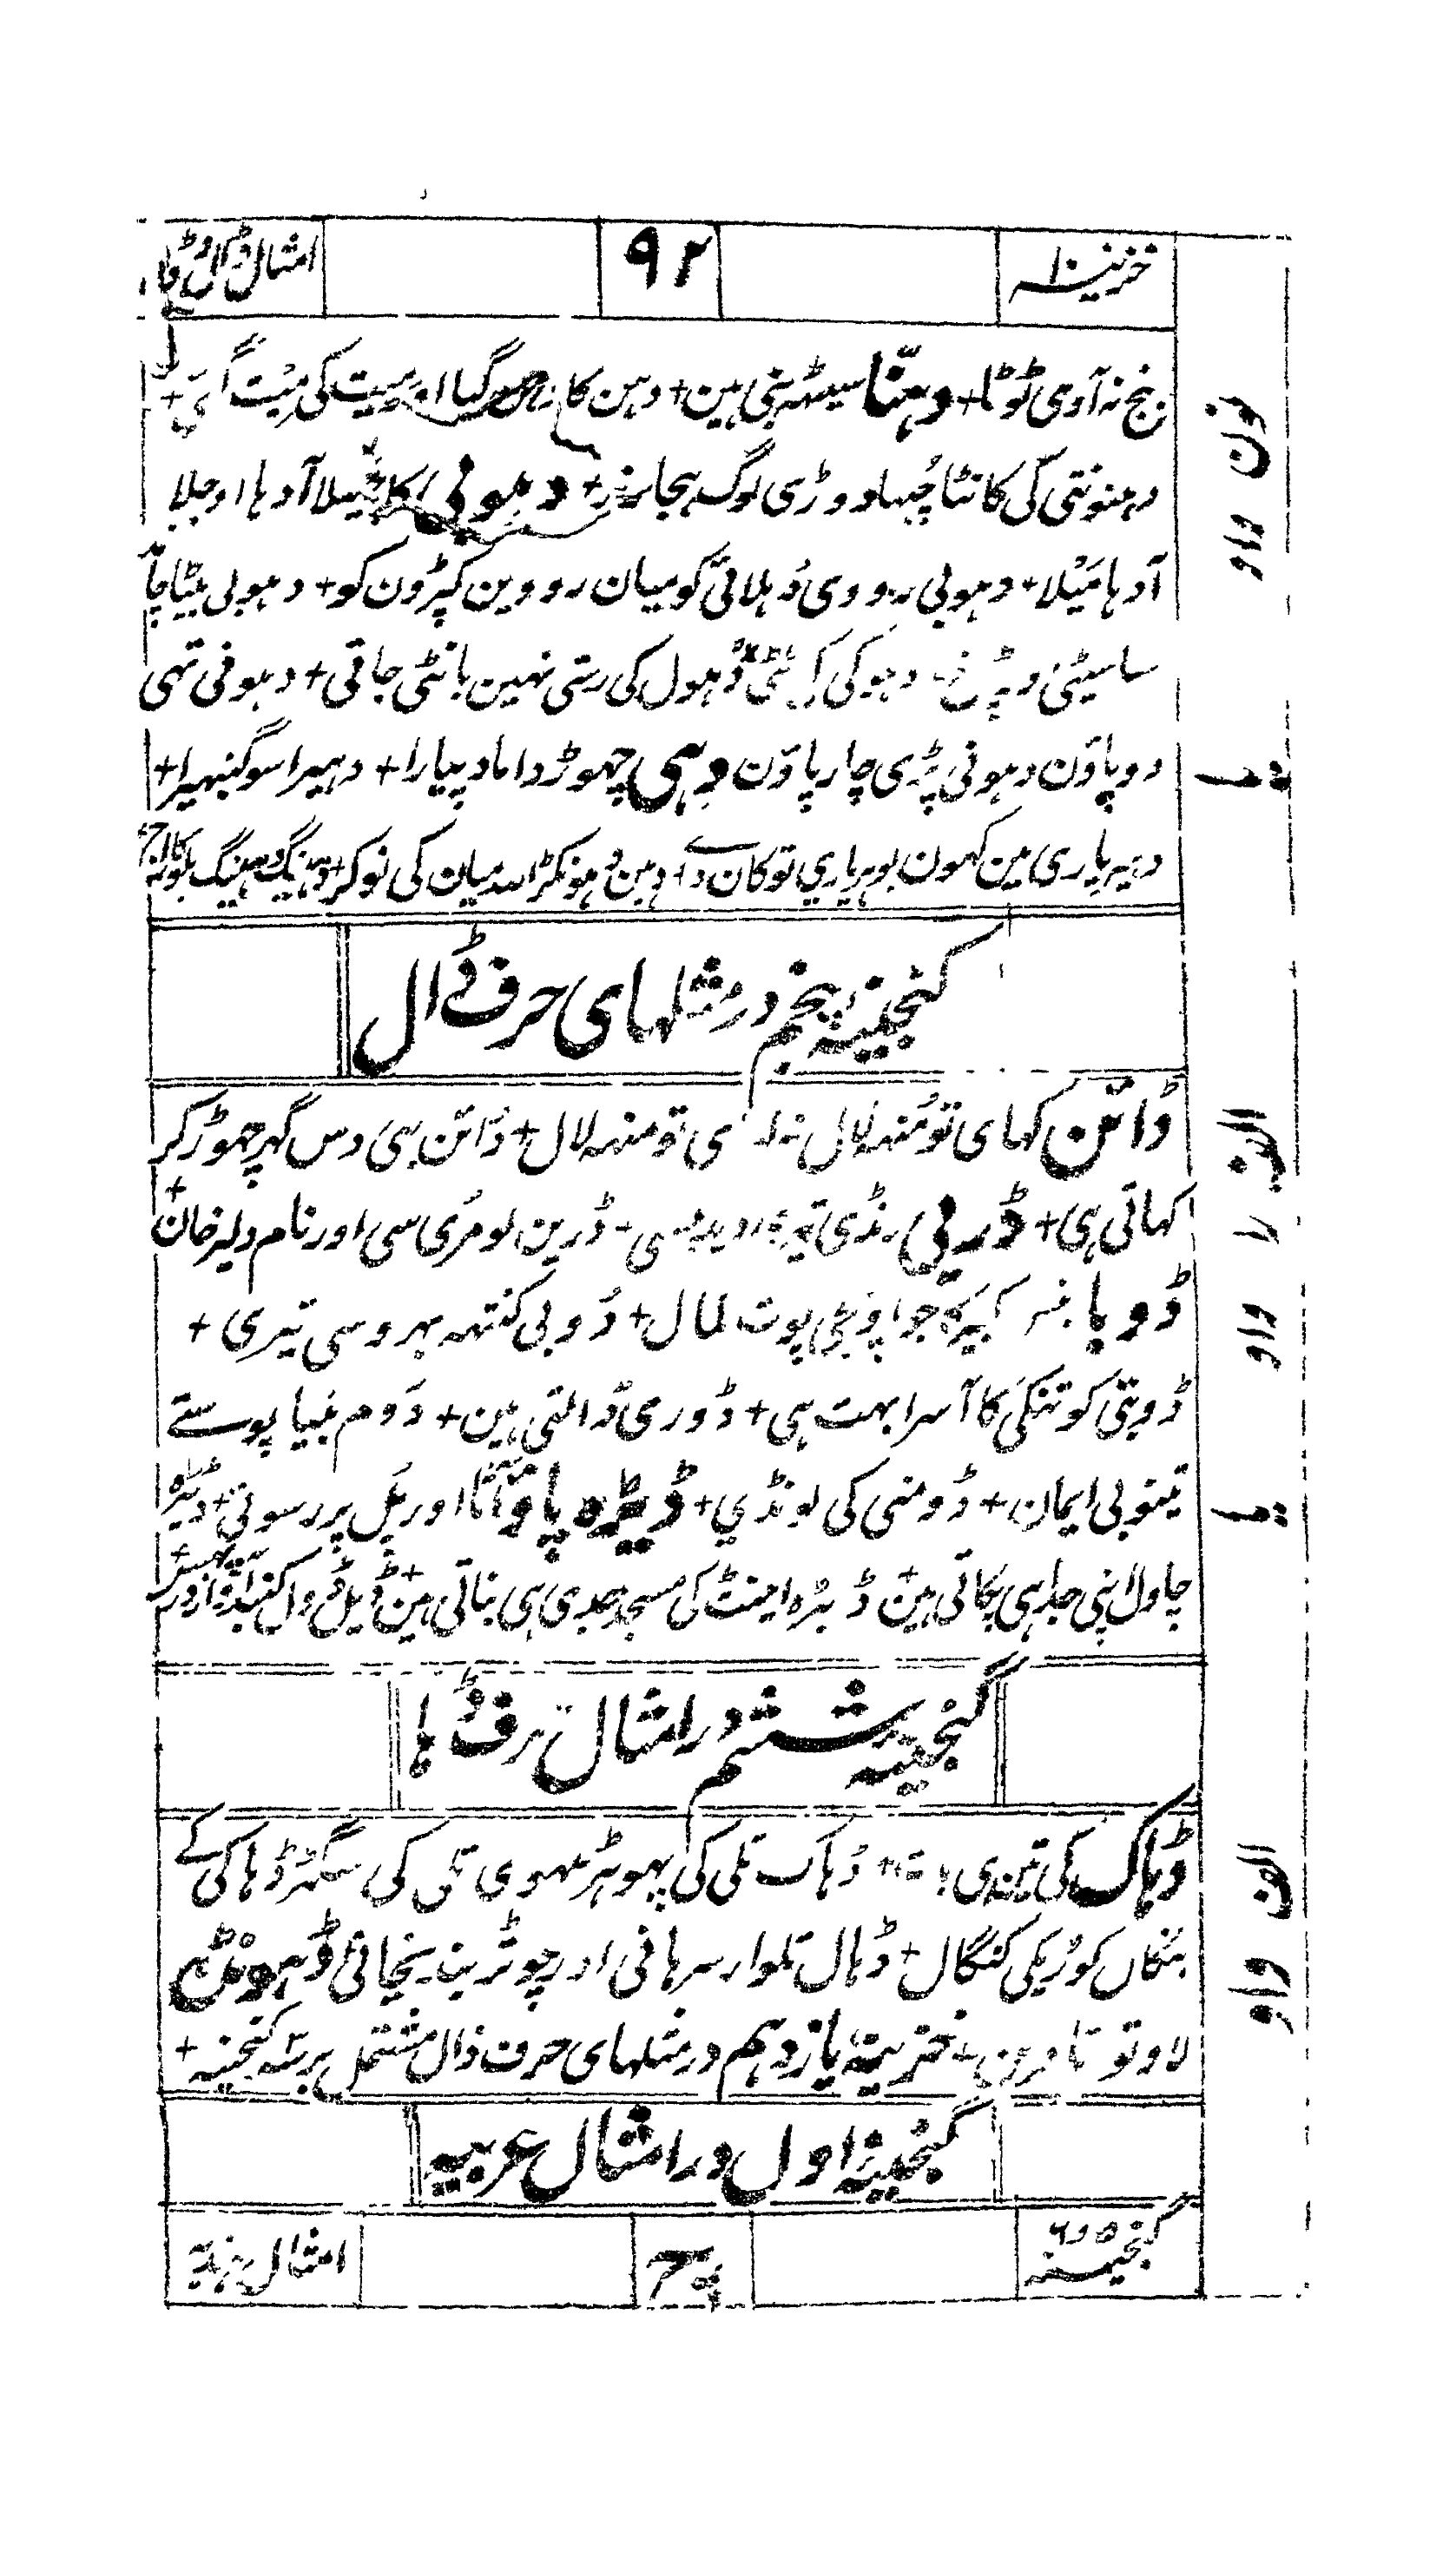 خزینہ ۱۰
۹۲
امثال
بنج نہ آوی ٹوٹا + دہنّا سیٹھ بنی ہین + دہن کا گیا اور میت کی میت گئی +
دہنونتی کی کانٹا چُبہا دوڑی لوگ ہجار + دہوبی کا چھیلا آدہا اوجلا
آدہا مَیْلا + دہوبی رووی دُہلائی کو میان رووین کپڑون کو + دہوبی بیٹا چاند
سا سیٹی دہوکی کی ٹٹی + دُہول کی رسّی نہین بانٹی جاتی + دہوفی تہی
دوپاوَن دہونی پڑی چار پاوَن دہی چھوڑ داماد پیارا + دہیرا سو گنبہیرا +
دہیریاری مین کہون بوہریاری تو کان دے +
نون
واو
یے
گنجینہ پنجم در مثلہای حرف ڈال
ڈائن کہای تو مُنہ لال نہ کہای تو منہ لال + ڈائن بہی دس گہر چھوڑ کر
کہاتی ہی + ڈرین لومڑی سی اور نام دلیر خان +
ڈوبا بنس کبیر کا جو اوپجی پوت کمال + ڈوبی کنتہہ بہروسی تیری +
ڈوبتی کو تنکی کا آسرا بہت ہی + ڈوری ڈالتی ہین + ڈوم بنیا پوستے
تینو بی ایمان + ڈومنی کی لونڈی + ڈیڑہ پاو آٹا اور پُل پر رسوئی + ڈیڑہ
چاول اپنی جدا ہی پکاتی ہین + ڈیڑہ اینٹ کی مسجد جدی ہی بناتی ہین +
الف
را
واو
یے
گنجینہ ششم در امثال حرف ڈہا
ڈہاک کی تین پات + ڈہاک تلی کی پہوہڑ مہوی تلی کی سگہڑ ڈہاکی کے
بنگال کوڑیکی کنگال + ڈہال تلوار سرہانی اور چوتڑ بندیخانی ڈہونڈہ
لاو تو + خزینہ یازدہم در مثلہای حرف ذال مشتمل بر سہ گنجینہ +
الف
واو
گنجینہ اول در امثال عربیہ
گنجینہ ۵ و ۶
امثال ہندیہ